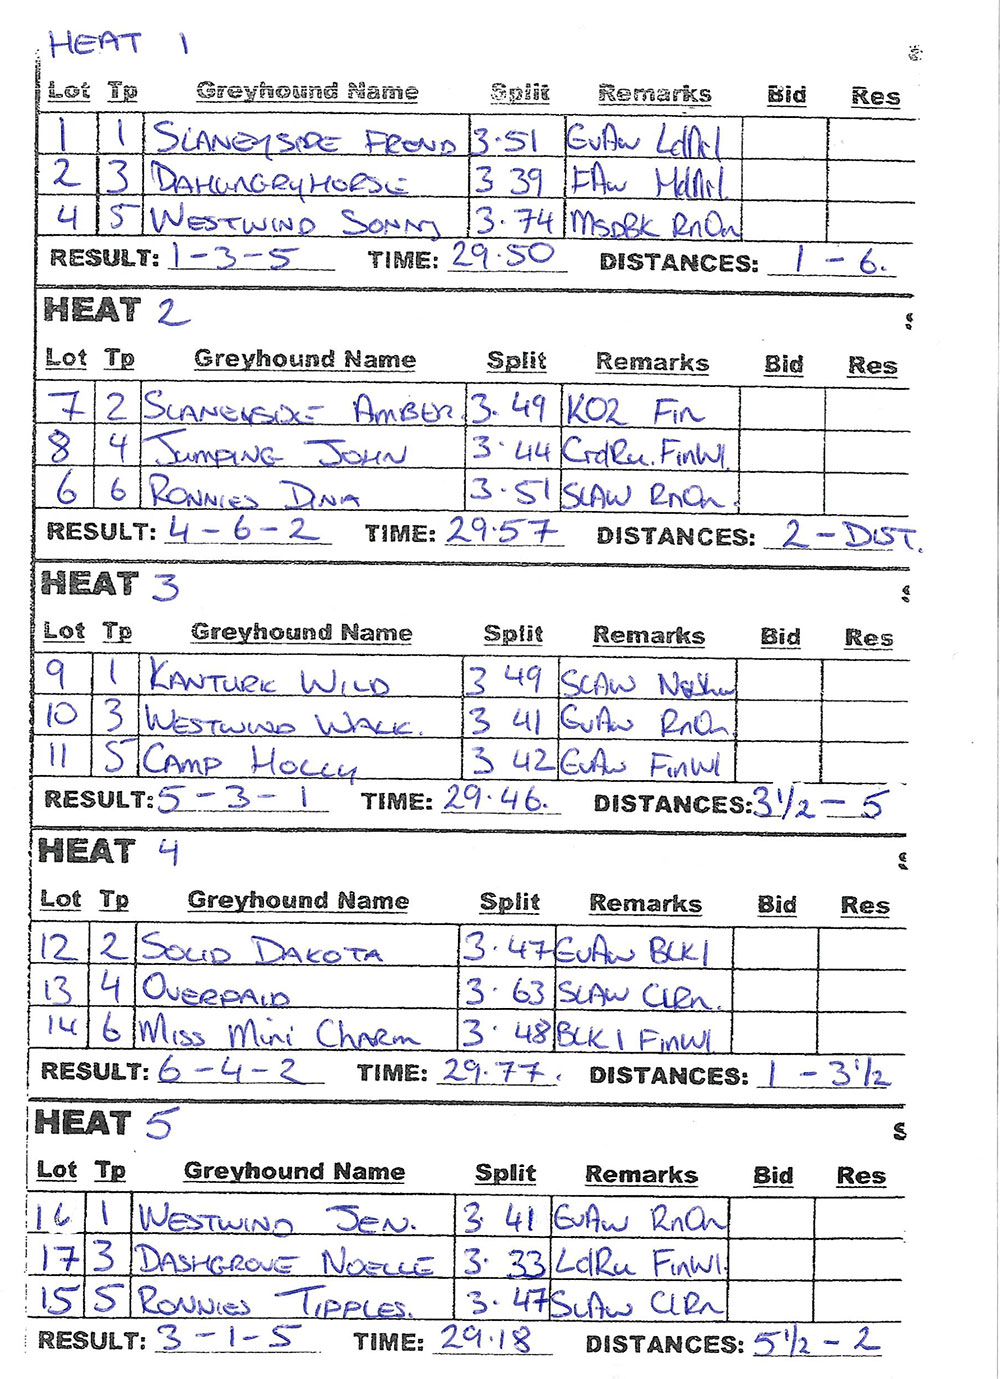 HEAT 1
Lot Tp Greyhound Name Split Remarks Bid Res
1 1 SLANEYSIDE FREND 3.51 EvAw LdNrl
2 3 DAHUNGRYHORSE 3 39 FAw MdNrl
4 5 WESTWIND SONNY 3.74 MsdBk RnOn
RESULT: 1-3-5 TIME: 29.50 DISTANCES: 1 - 6.
HEAT 2
Lot Tp Greyhound Name Split Remarks Bid Res
7 2 SLANEYSIDE AMBER. 3.49 KO2 Fin
8 4 JUMPING JOHN 3.44 CrdRu.FinWl.
6 6 RONNIES DINA 3.51 SLAW RnOn.
RESULT: 4-6-2 TIME: 29.57 DISTANCES: 2 - DIST.
HEAT 3
Lot Tp Greyhound Name Split Remarks Bid Res
9 1 KANTURK WILD 3 49 SLAW
10 3 WESTWIND WALK. 3 41 EvAw RnOn
11 5 CAMP HOLLY 3 42 EvAw FinWl
RESULT: 5-3-1 TIME: 29.46. DISTANCES: 3 1/2 - 5
HEAT 4
Lot Tp Greyhound Name Split Remarks Bid Res
12 2 SOLID DAKOTA 3.47 EvAw BLK1
13 4 OVERPAID 3.63 SLAW ClRn.
14 6 MISS MINI CHARM 3.48 BLK1 FinWl
RESULT: 6-4-2 TIME: 29.77. DISTANCES: 1 - 3 1/2
HEAT 5
Lot Tp Greyhound Name Split Remarks Bid Res
16 1 WESTWIND JEN. 3.41 EvAw RnOn
17 3 DASHGROVE NOELLE 3.33 LdRu FinWl.
15 5 RONNIES TIPPLES. 3.47 SLAW ClRn
RESULT: 3-1-5 TIME: 29.18 DISTANCES: 5 1/2 - 2